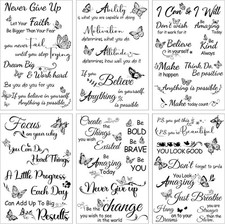 Never Give Up
Let Your Faith
Be Bigger Than Your Fear
Don't cry
Just keep trying
Dream Big
& Work hard
Be you do you for you
If you believe in yourself
anything is possible
Ability
is what you are capable of doing
Motivation
determines, what you do
Attitude
determines how well you do it
If you
Believe
in yourself
Anything
is possible
I Can & I Will
Don't wish
for it
Work
for it
Amazing
Things Happen
Believe
in Yourself
Kind
Always
Make it
happen
Think
Be positive
Anything is possible
Make
Today count
Focus
on your why
You Can Do
Hard Things
A Little Progress
Each Day
Can Add Up To Big
Results
Create
the
Things
you wish
Existed
Be
BOLD
Be
BRAVE
Be
YOU
Today you are
Amazing
Never Give up
Be the
change
you wish to see
in the world
P.S. you got this
P.S. you're Beautiful
YOU LOOK GOOD
Don't forget
to smile
You Look
Amazing
Just Breathe
You are
Amazing
LOOK GOOD